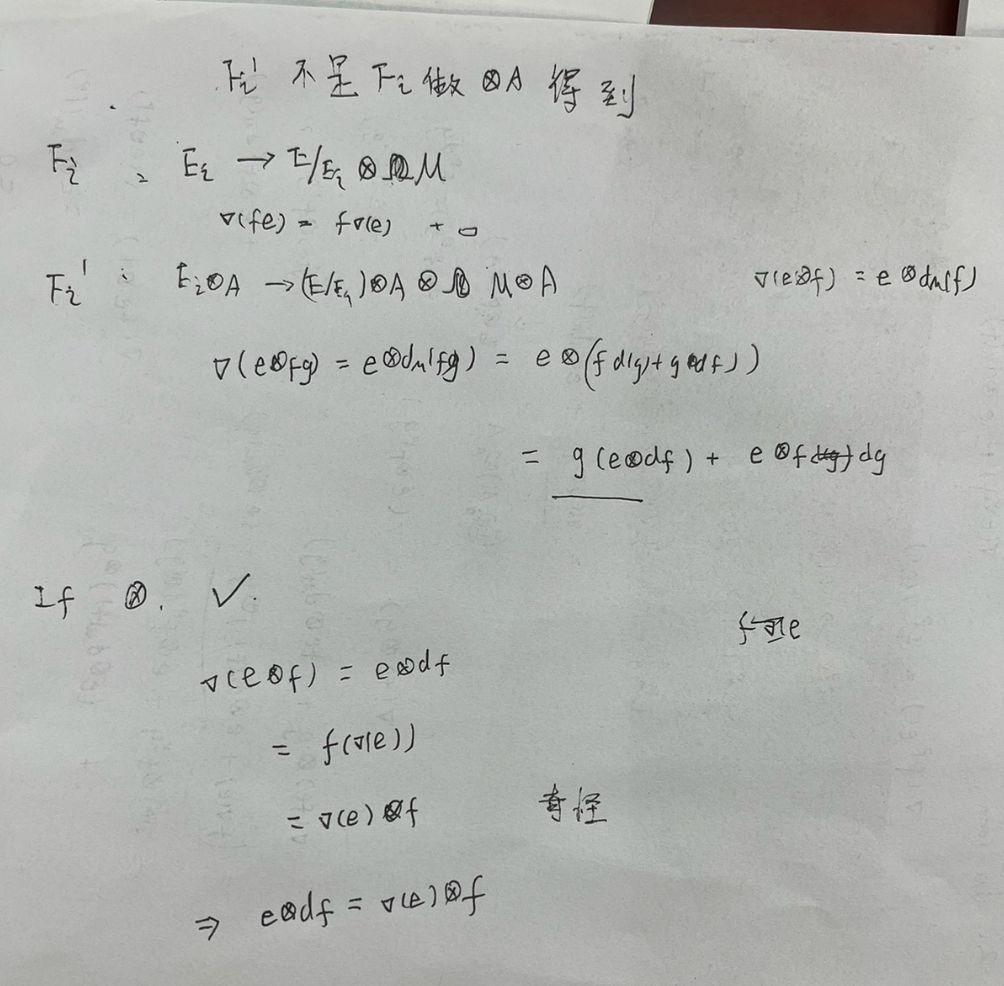 Fi' 不是 Fi 做 ⊗A 得到
Fi : Ei → E/Ei ⊗ ΩM
∇(fe) = f∇(e) + 0
Fi' : Ei⊗A → (E/Ei)⊗A ⊗ M⊗A ∇(e⊗f) = e⊗dM(f)
∇(e⊗fg) = e⊗dM(fg) = e⊗(f d(g) + g df))
= g(e⊗df) + e⊗f dg
If ⊗. ✓.
∇(e⊗f) = e⊗df
= f(∇(e))
= ∇(e)⊗f 奇怪
⇒ e⊗df = ∇(e)⊗f